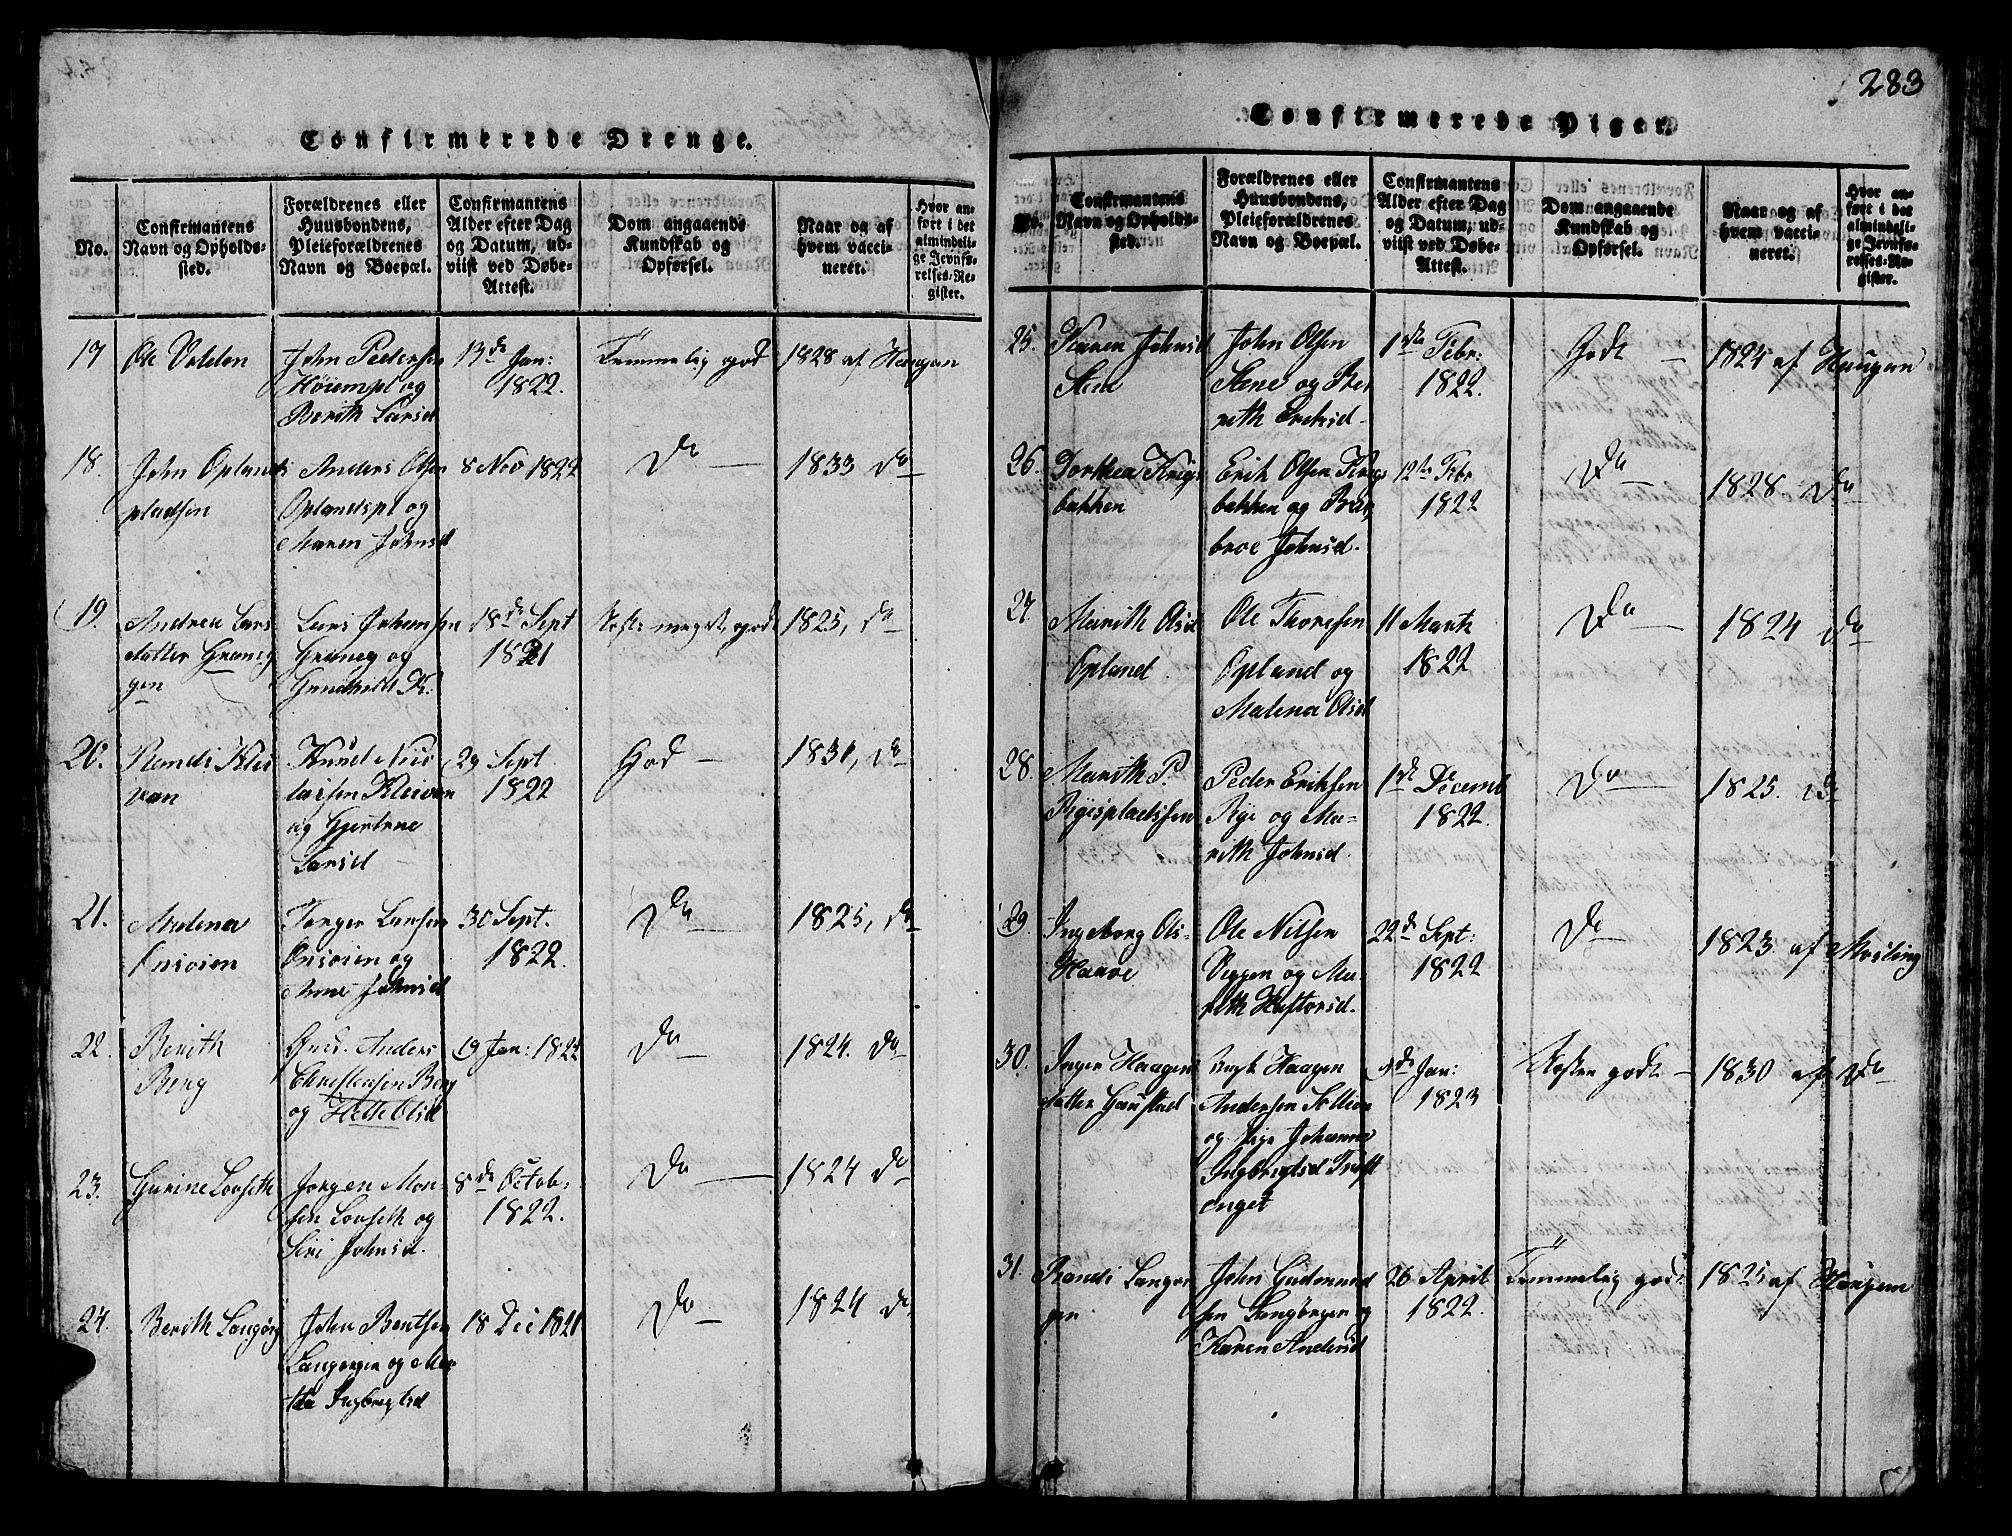 283
Confirmerede Drenge.
No.
Confirmantens
Navn og Opholds-
sted.
Forældrenes eller
Huusbondens,
Pleieforældrenes
Navn og Boepæl.
Confirmantens
Alder efter Dag
og Datum, ud-
viist ved Døbe-
Attest.
Dom angaaende
Kundskab og
Opførsel.
Naar og af
hvem vacci-
neret.
Hvor an-
ført i det
almindeli-
ge Jevnfø-
relses-Re-
gister.
17
Ole Volden
John Pedersen
og
Berith Larsd
13de Jan:
1822.
Temmelig god
1828 af Haugan
18.
John Oplands
pladsen
Anders Olsen
Oplandspl og
Maren Johnsd
8 Nov 1822
Do
1833 Do
19.
Andrea Lars
datter
gen
Lars Johansen
og
18de Sept
1821
meget god
1825, Do
20.
Randi Klei
van
Knud Nico
laisen Kleivan
og Gjertrue
Larsd
29 Sept
1822
God
1831, Do
21.
Malena
Onsoien
Larsen
Onsoien og
Anne Johnsd
30 Sept.
1822.
Do
1825, Do
22.
Berith
Berg
Anders
Christensen Berg
og
19 Jan: 1822
Do
1824. Do
23.
Gurine Lovseth
Jørgen Mon
sen Lovseth og
Siri Johnsd.
8de Octob:
1822.
Do
1824 Do
24.
Berith Langørg
John Bentsen
Langørgen og Me
Ingbrigtsd
18 Dec 1821
Do
1824 Do
Confirmerede Piger.
No.
Confirmantens
Navn og Opholds-
sted.
Forældrenes eller
Huusbondens,
Pleieforældrenes
Navn og Boepæl.
Confirmantens
Alder efter Dag
og Datum, ud-
viist ved Døbe-
Attest.
Dom angaaende
Kundskab og
Opførsel.
Naar og af
hvem vacci-
neret.
Hvor an-
ført i det
almindeli-
ge Jevnfø-
relses-Re-
gister.
25.
Karen Johnsd
Stene
John Olsen
Stene og Be
reth Eriksd.
1ste Febr:
1822.
Godt
1824 af Haugan
26.
Dorthea Krigs
bakken
Erik Olsen Krigs
bakken og Bar
broe Johnsd.
12te Febr
1822
Do
1828 Do
27
Marith Olsd
Opland
Ole Thoresen
Opland og
Malena Olsd
11 Marts
1822
Do
1824 Do
28.
Marith P.
Ryespladssen
Peder Eriksen
Rye og Ma-
rith Johnsd.
1ste Decemb
1822.
Do
1825. Do
29.
Ingeborg Ols-
Haave
Ole Nilsen
Veggen og Ma
rith Haftorsd.
22de Sept:
1822
Do
1823. af Møsling
30.
Inger Haagens
datter Gaustad
Ungk Haagen
Andersen Sollien
og Pige Johanna
Ingbrigtsd Trøst
enget
4de Jan:
1823
godt
1830 af Do
31.
Randi Langør
gen
John Gudmund
sen Langørgen og
Karen Andersd
26 April
1822.
Temmelig godt
1825 af Haugan